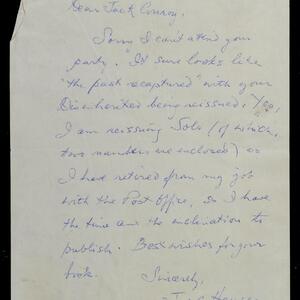 Dear Jack Conroy,
Sorry I can't attend your
party. "It sure looks like
"the past recaptured" with your
Disinherited being reissued. Yes,
I am reissuing Solo (of which
two numbers are enclosed) as
I have retired from my job
with the Post Office, so I have
the time and the inclination to
publish. Best wishes for your
book.
Sincerely,